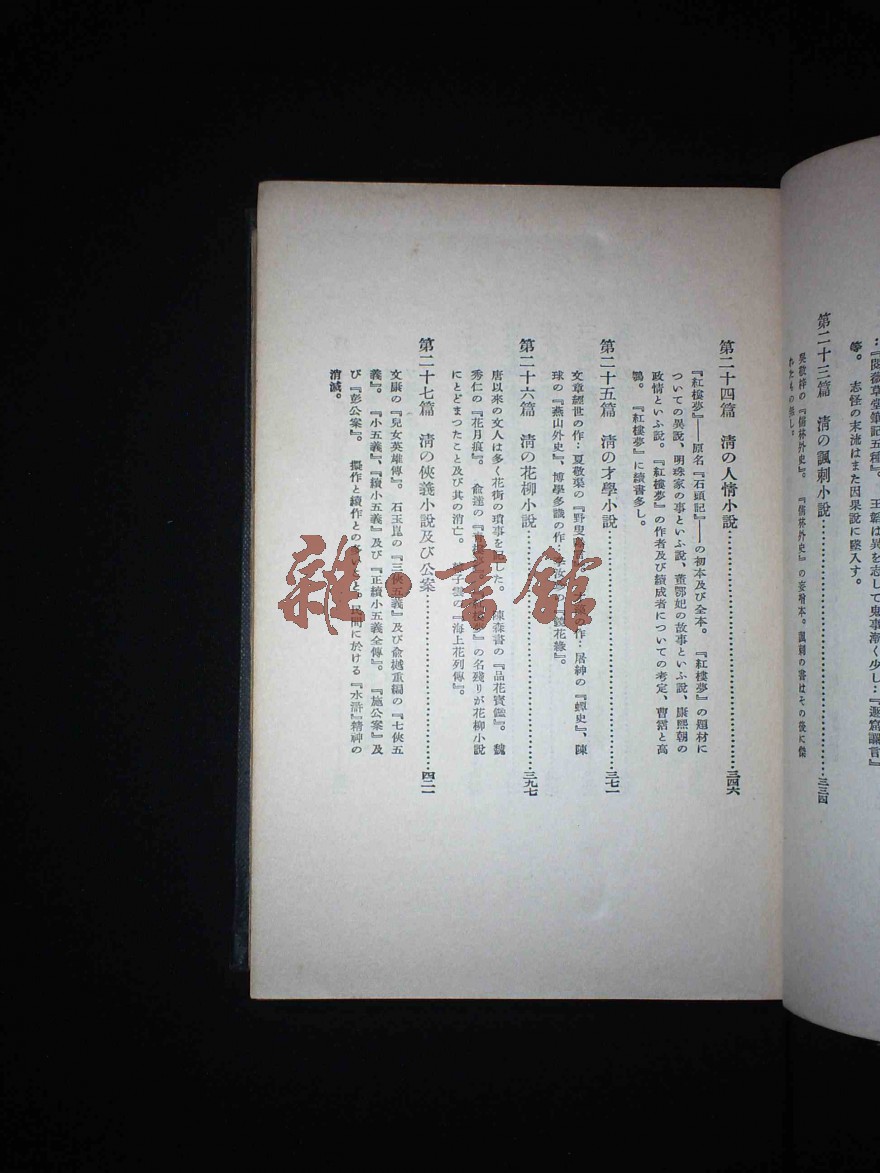 ：『閱微草堂筆記五種』。 王韜は異を志して鬼事漸く少し：『遯窟讕言』
等。 志怪の末流はまた因果說に墜入す。
第二十三篇 淸の諷刺小說……………三三四
吳敬梓の『儒林外史』。『儒林外史』の妄增本。諷刺の書はその後に傑
第二十四篇 淸の人情小說……………三四六
『紅樓夢』——原名『石頭記』——の初本及び全本。 『紅樓夢』の題材に
ついての異說、明珠家の事といふ說、董鄂妃の故事といふ說、康熙朝の
政情といふ說。『紅樓夢』の作者及び續成者についての考定、曹霑と高
鶚。 『紅樓夢』に續書多し。
第二十五篇 淸の才學小說……………三七一
文章經世の作：夏敬渠の『野叟 の作：屠紳の『蟫史』、陳
球の『燕山外史』、博學多識の作 花緣』。
第二十六篇 淸の花柳小說……………三九七
唐以來の文人は多く花街の瑣事を記した。 陳森書の『品花寶鑑』。 魏
秀仁の『花月痕』。 俞達の『 』の名殘りが花柳小說
にとどまつたこと及び其の消亡。 子雲の『海上花列傳』。
第二十七篇 淸の俠義小說及び公案……………四二一
文康の『兒女英雄傳』。 石玉崑の『三俠五義』及び俞樾重編の『七俠五
義』。 『小五義』、『續小五義』及び『正續小五義全傳』。 『施公案』及
び『彭公案』。 擬作と續作との多いこと。民間に於ける『水滸』精神の
消滅。
雜·書館